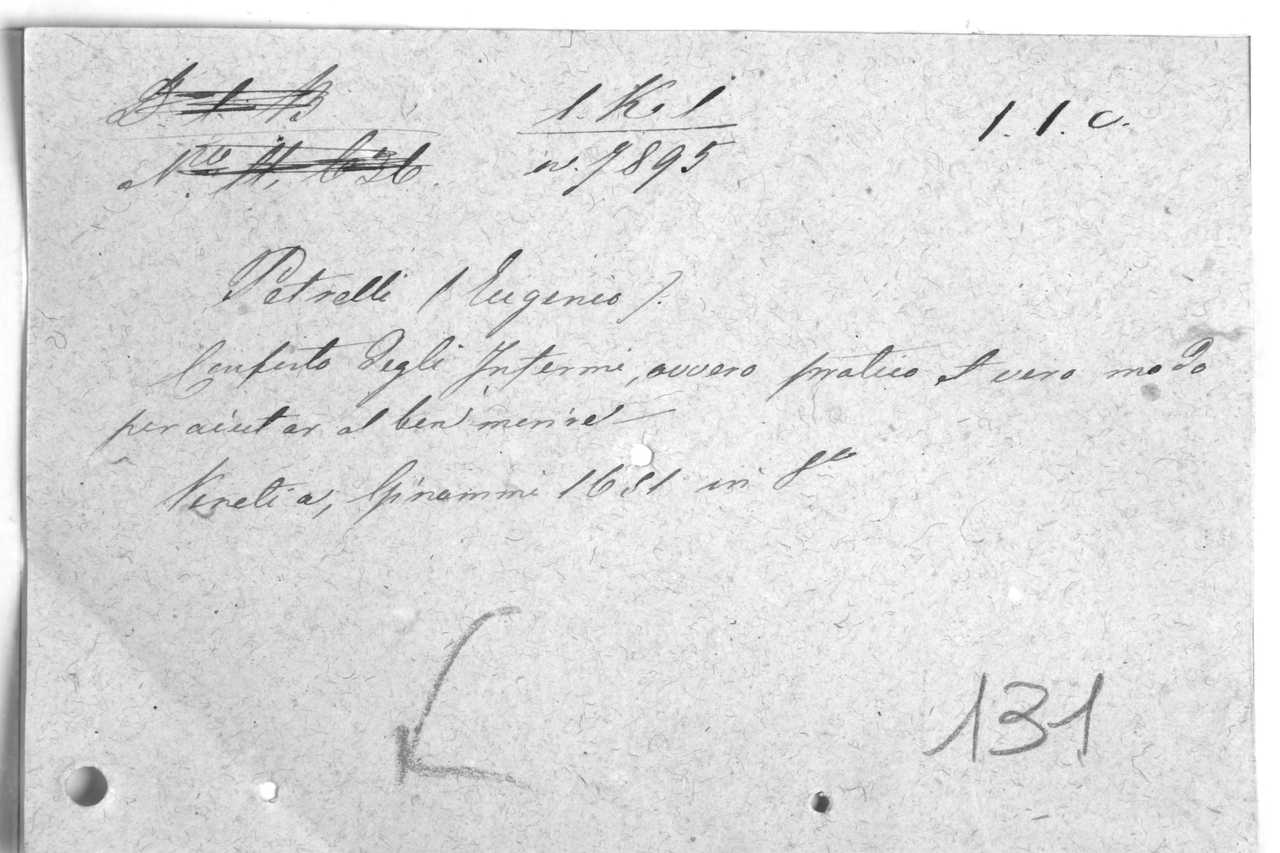 1. K. 1
n. 7895
1. 1. c.
Petrelli (Eugenio).
Conforto degli Infermi, ovvero pratico et vero modo
per aiutar al ben morire
Venetia, Ginammi 1631 in 8º
131